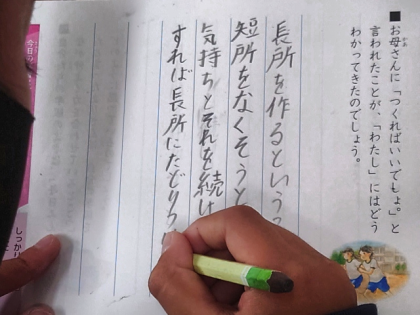 ■お母さんに「つくればいいでしょ。」と
言われたことが、「わたし」にはどう
わかってきたのでしょう。
長所を作るという
短所をなくそうと
気持ちとそれを続け
すれば長所にたどりつ
しっかり